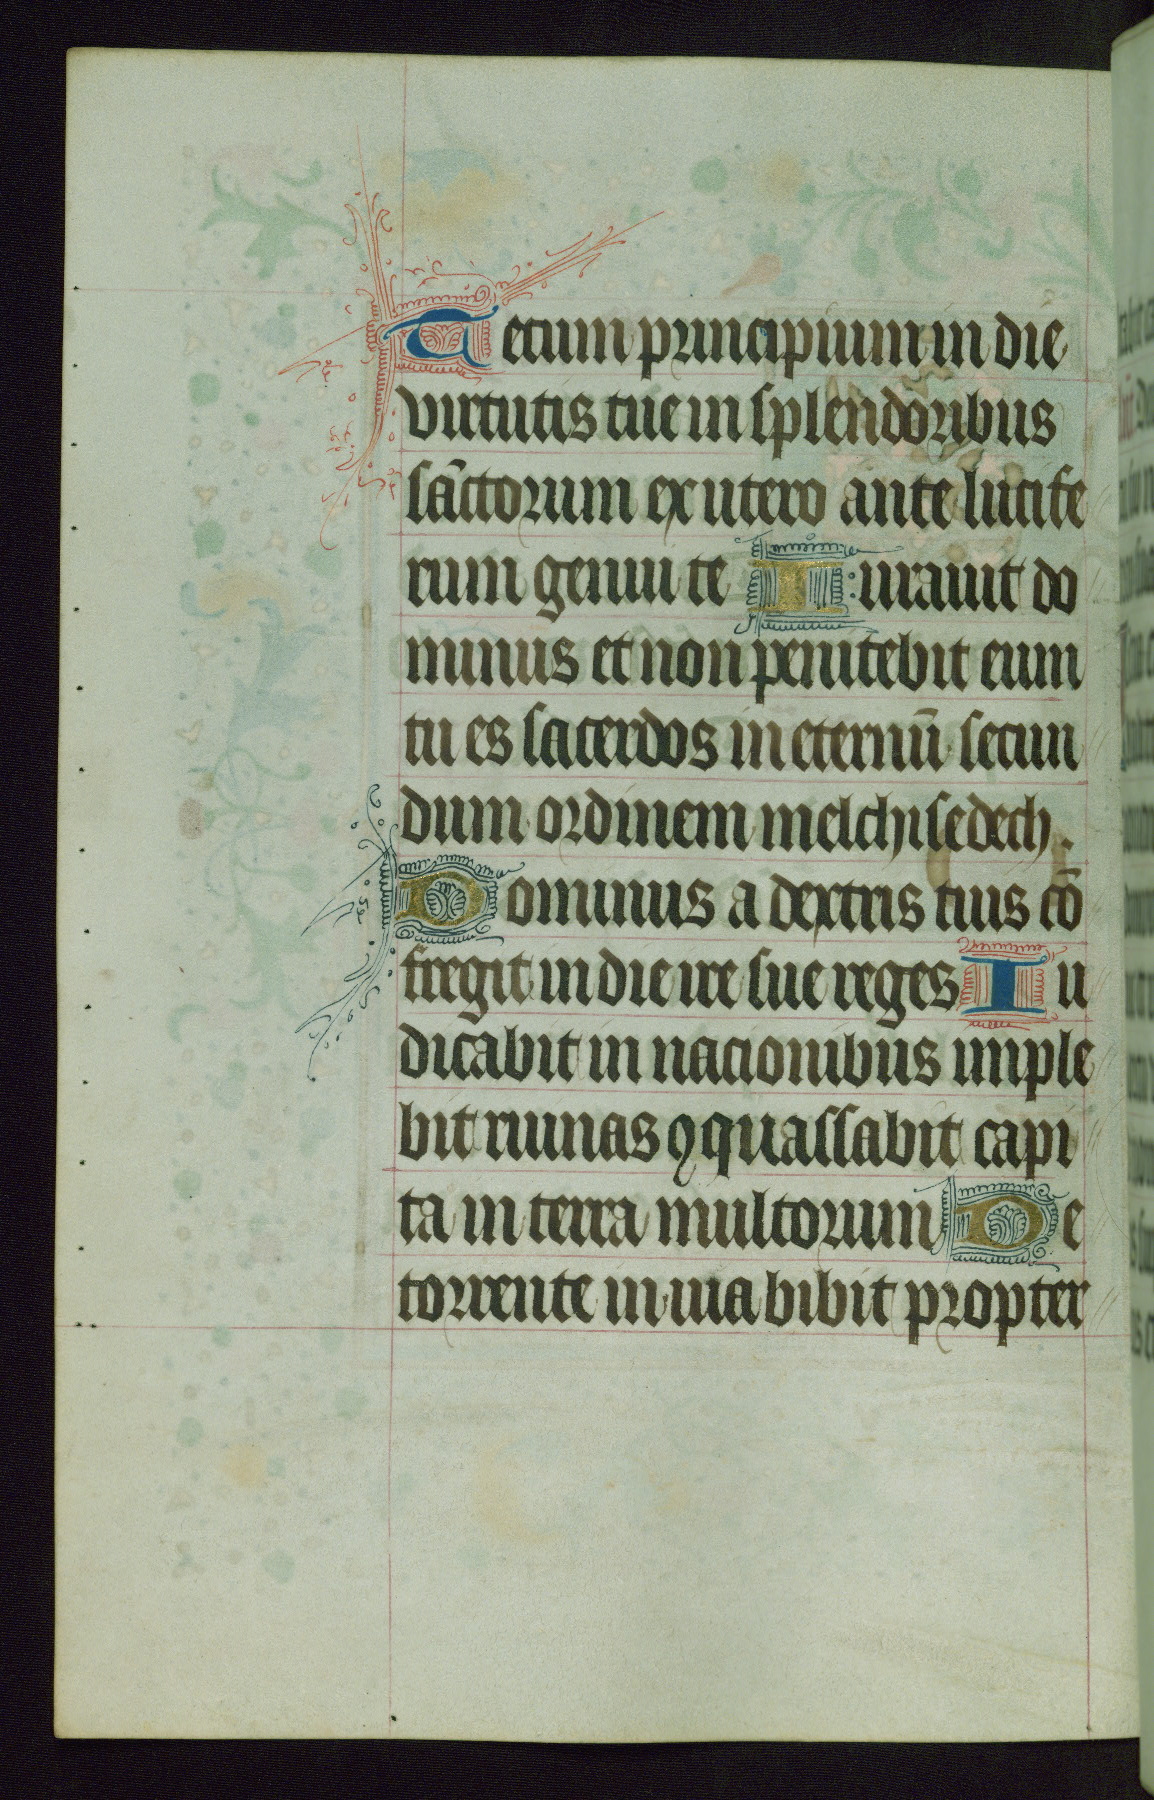 Tecum principium in die
virtutis tue in splendoribus
sāctorum ex utero ante lucife
rum genui te Iurauit do
minus et non penitebit eum
tu es sacerdos in eternū secun
dum ordinem melchisedech .
Dominus a dextris tuis cō
fregit in die ire sue reges Iu
dicabit in nacionibus imple
bit ruinas ꝯquassabit capi
ta in terra multorum De
torrente in uia bibit propter